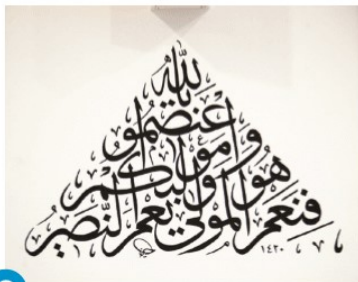 واعتصموا بالله
هو مولىكم
فنعم المولى ونعم النصير
١٤٢٠